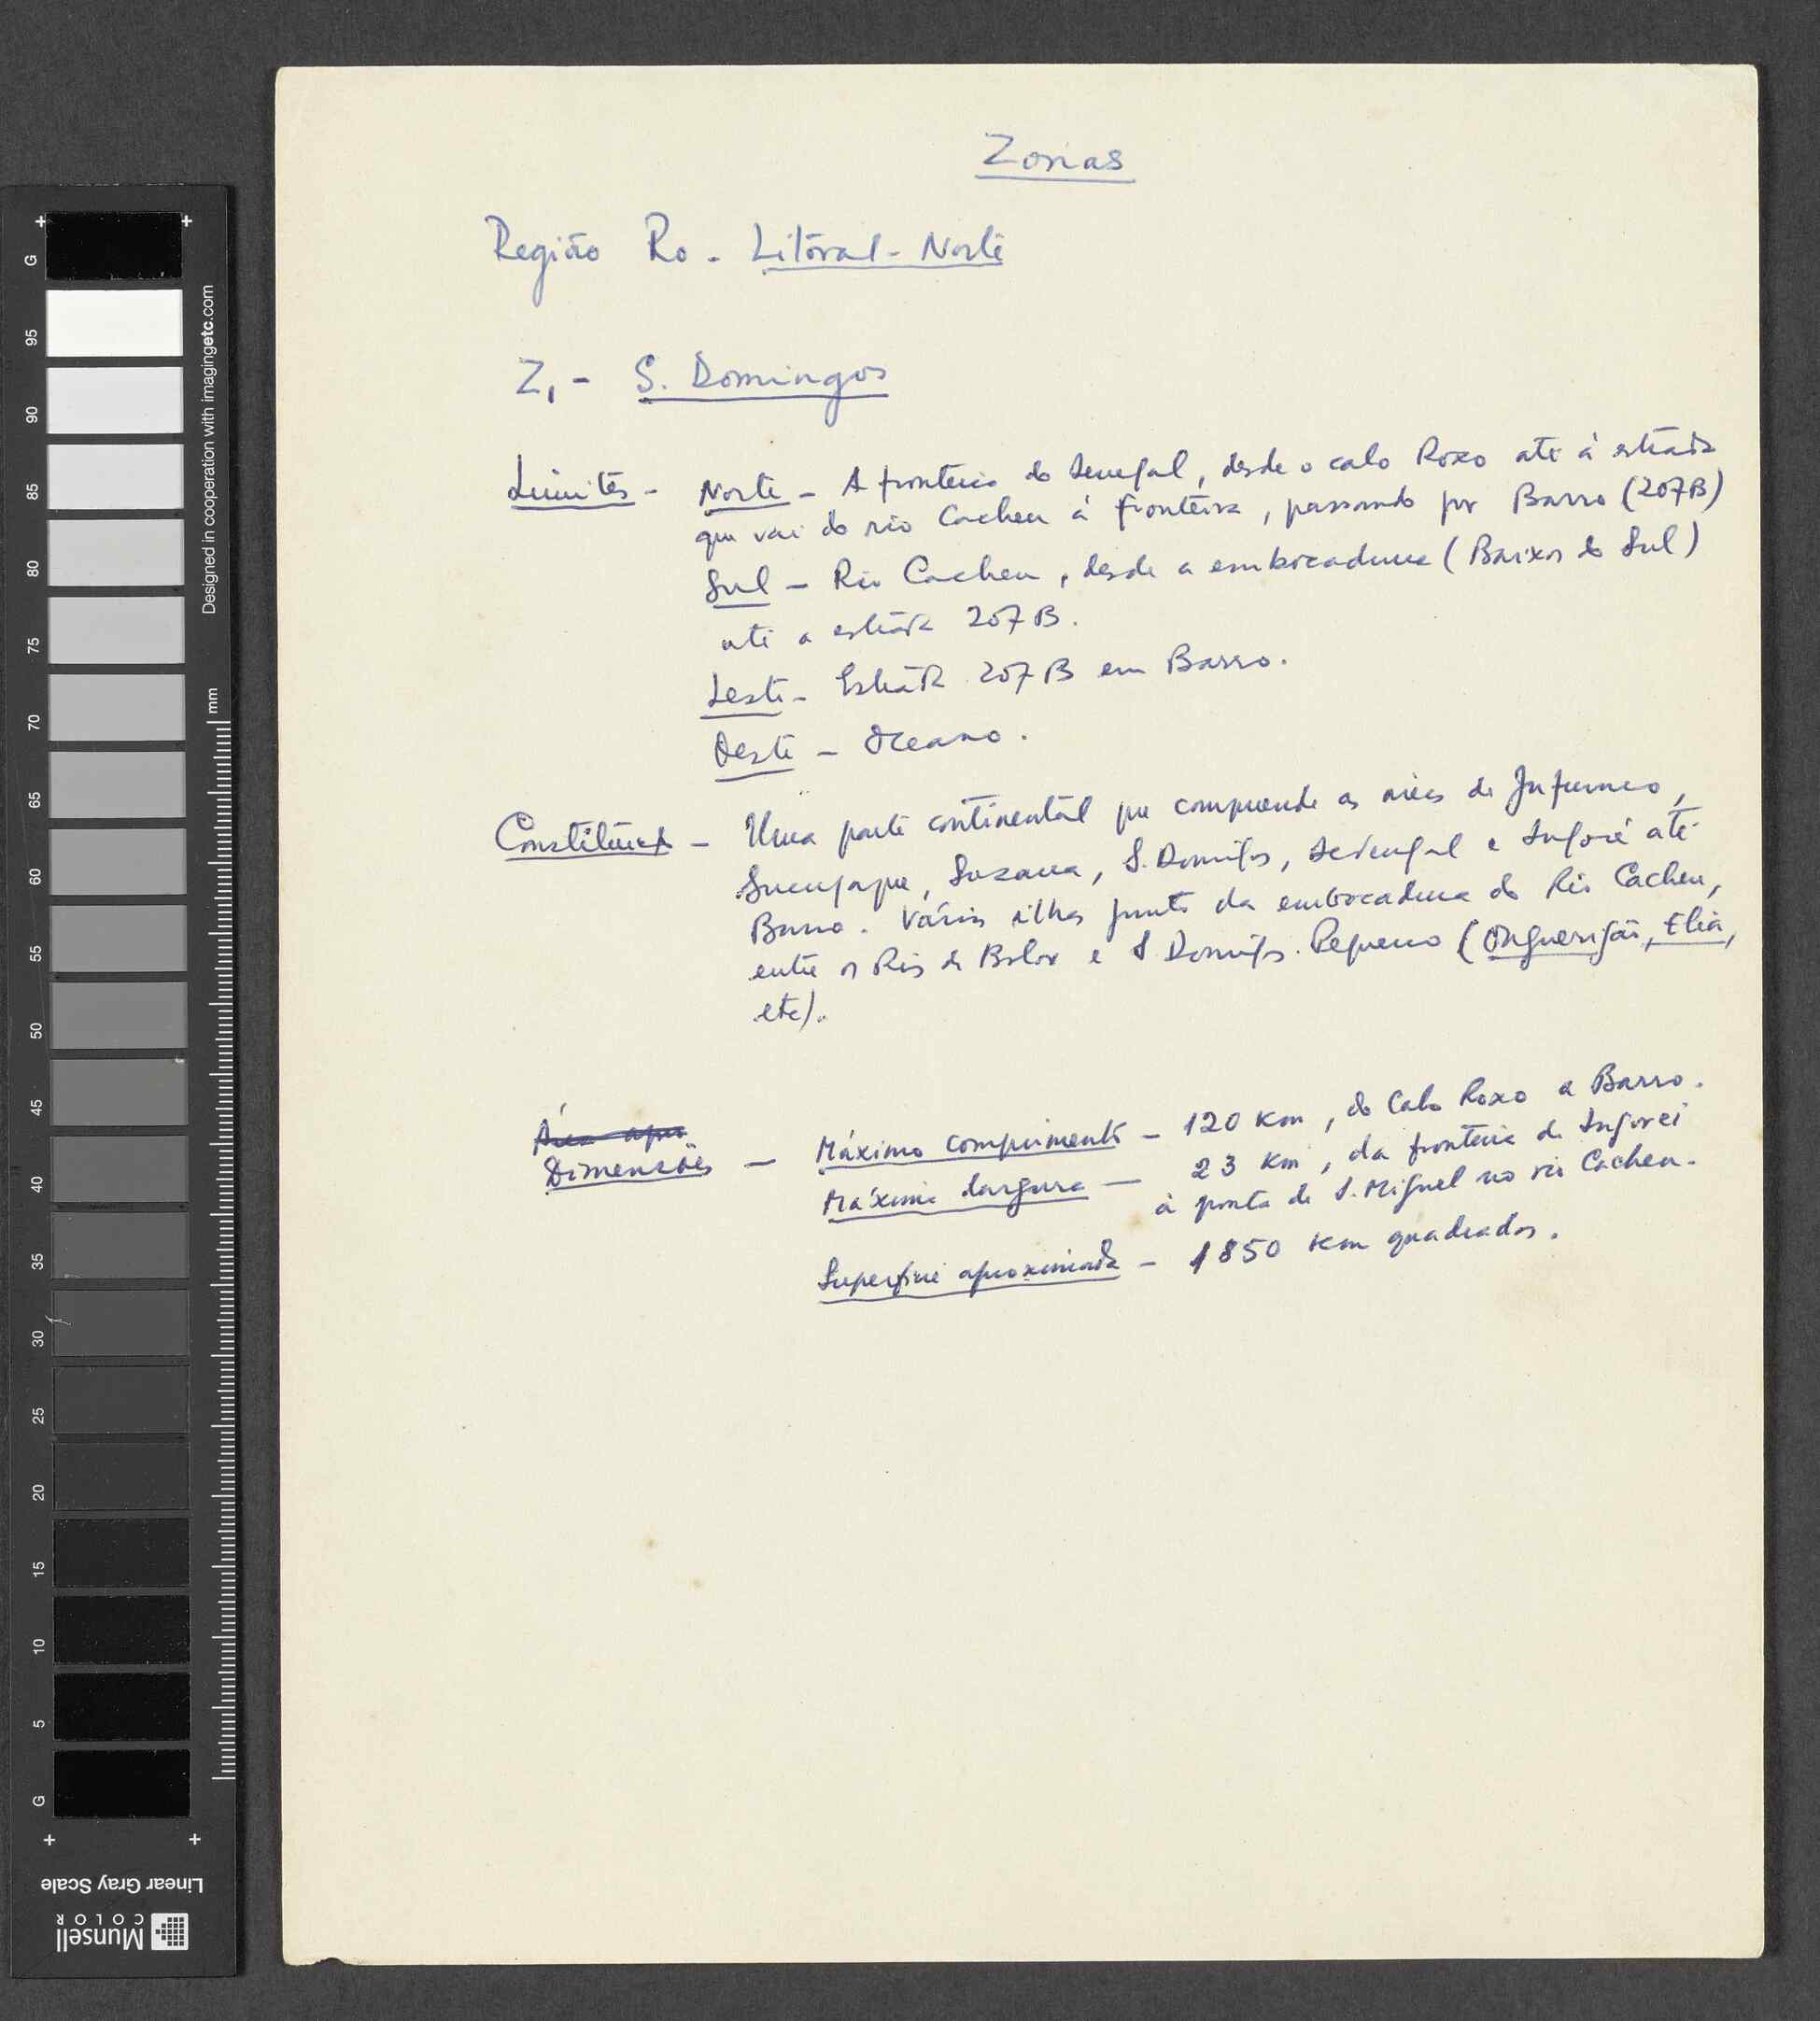 Zonas
Região Ro - Litoral - Norte
Z, - S. Domingos
Limites - Norte - A fronteira do Senegal, desde o cabo Roxo até à estrada
que vai do rio Cacheu à fronteira, passando por Barro (207B)
Sul - Rio Cacheu, desde a embocadura (Baixos do Sul)
até a estrada 207B.
Leste - Estrada 207B em Barro.
Oeste - Oceano.
Constituição - Uma parte continental que compreende as áreas de
Suzana, S. Domingos, Sedengal e Ingoré até
Barro. Várias ilhas junto da embocadura do Rio Cacheu,
entre os Rios de Bolor e S. Domingos. Pequeno (Elia,
etc).
Área apro
Dimensões - Máximo comprimento - 120 Km, do Cabo Roxo a Barro.
Máxima largura - 23 Km, da fronteira de Ingorei
à ponta de S. Miguel no rio Cacheu.
Superfície aproximada - 1850 Km quadrados.
G
95
90
85
80
75
70
65
60
55
50
45
40
35
30
25
20
15
10
5
G
Designed in cooperation with imagingetc.com
mm
Linear Gray Scale
Munsell
COLOR